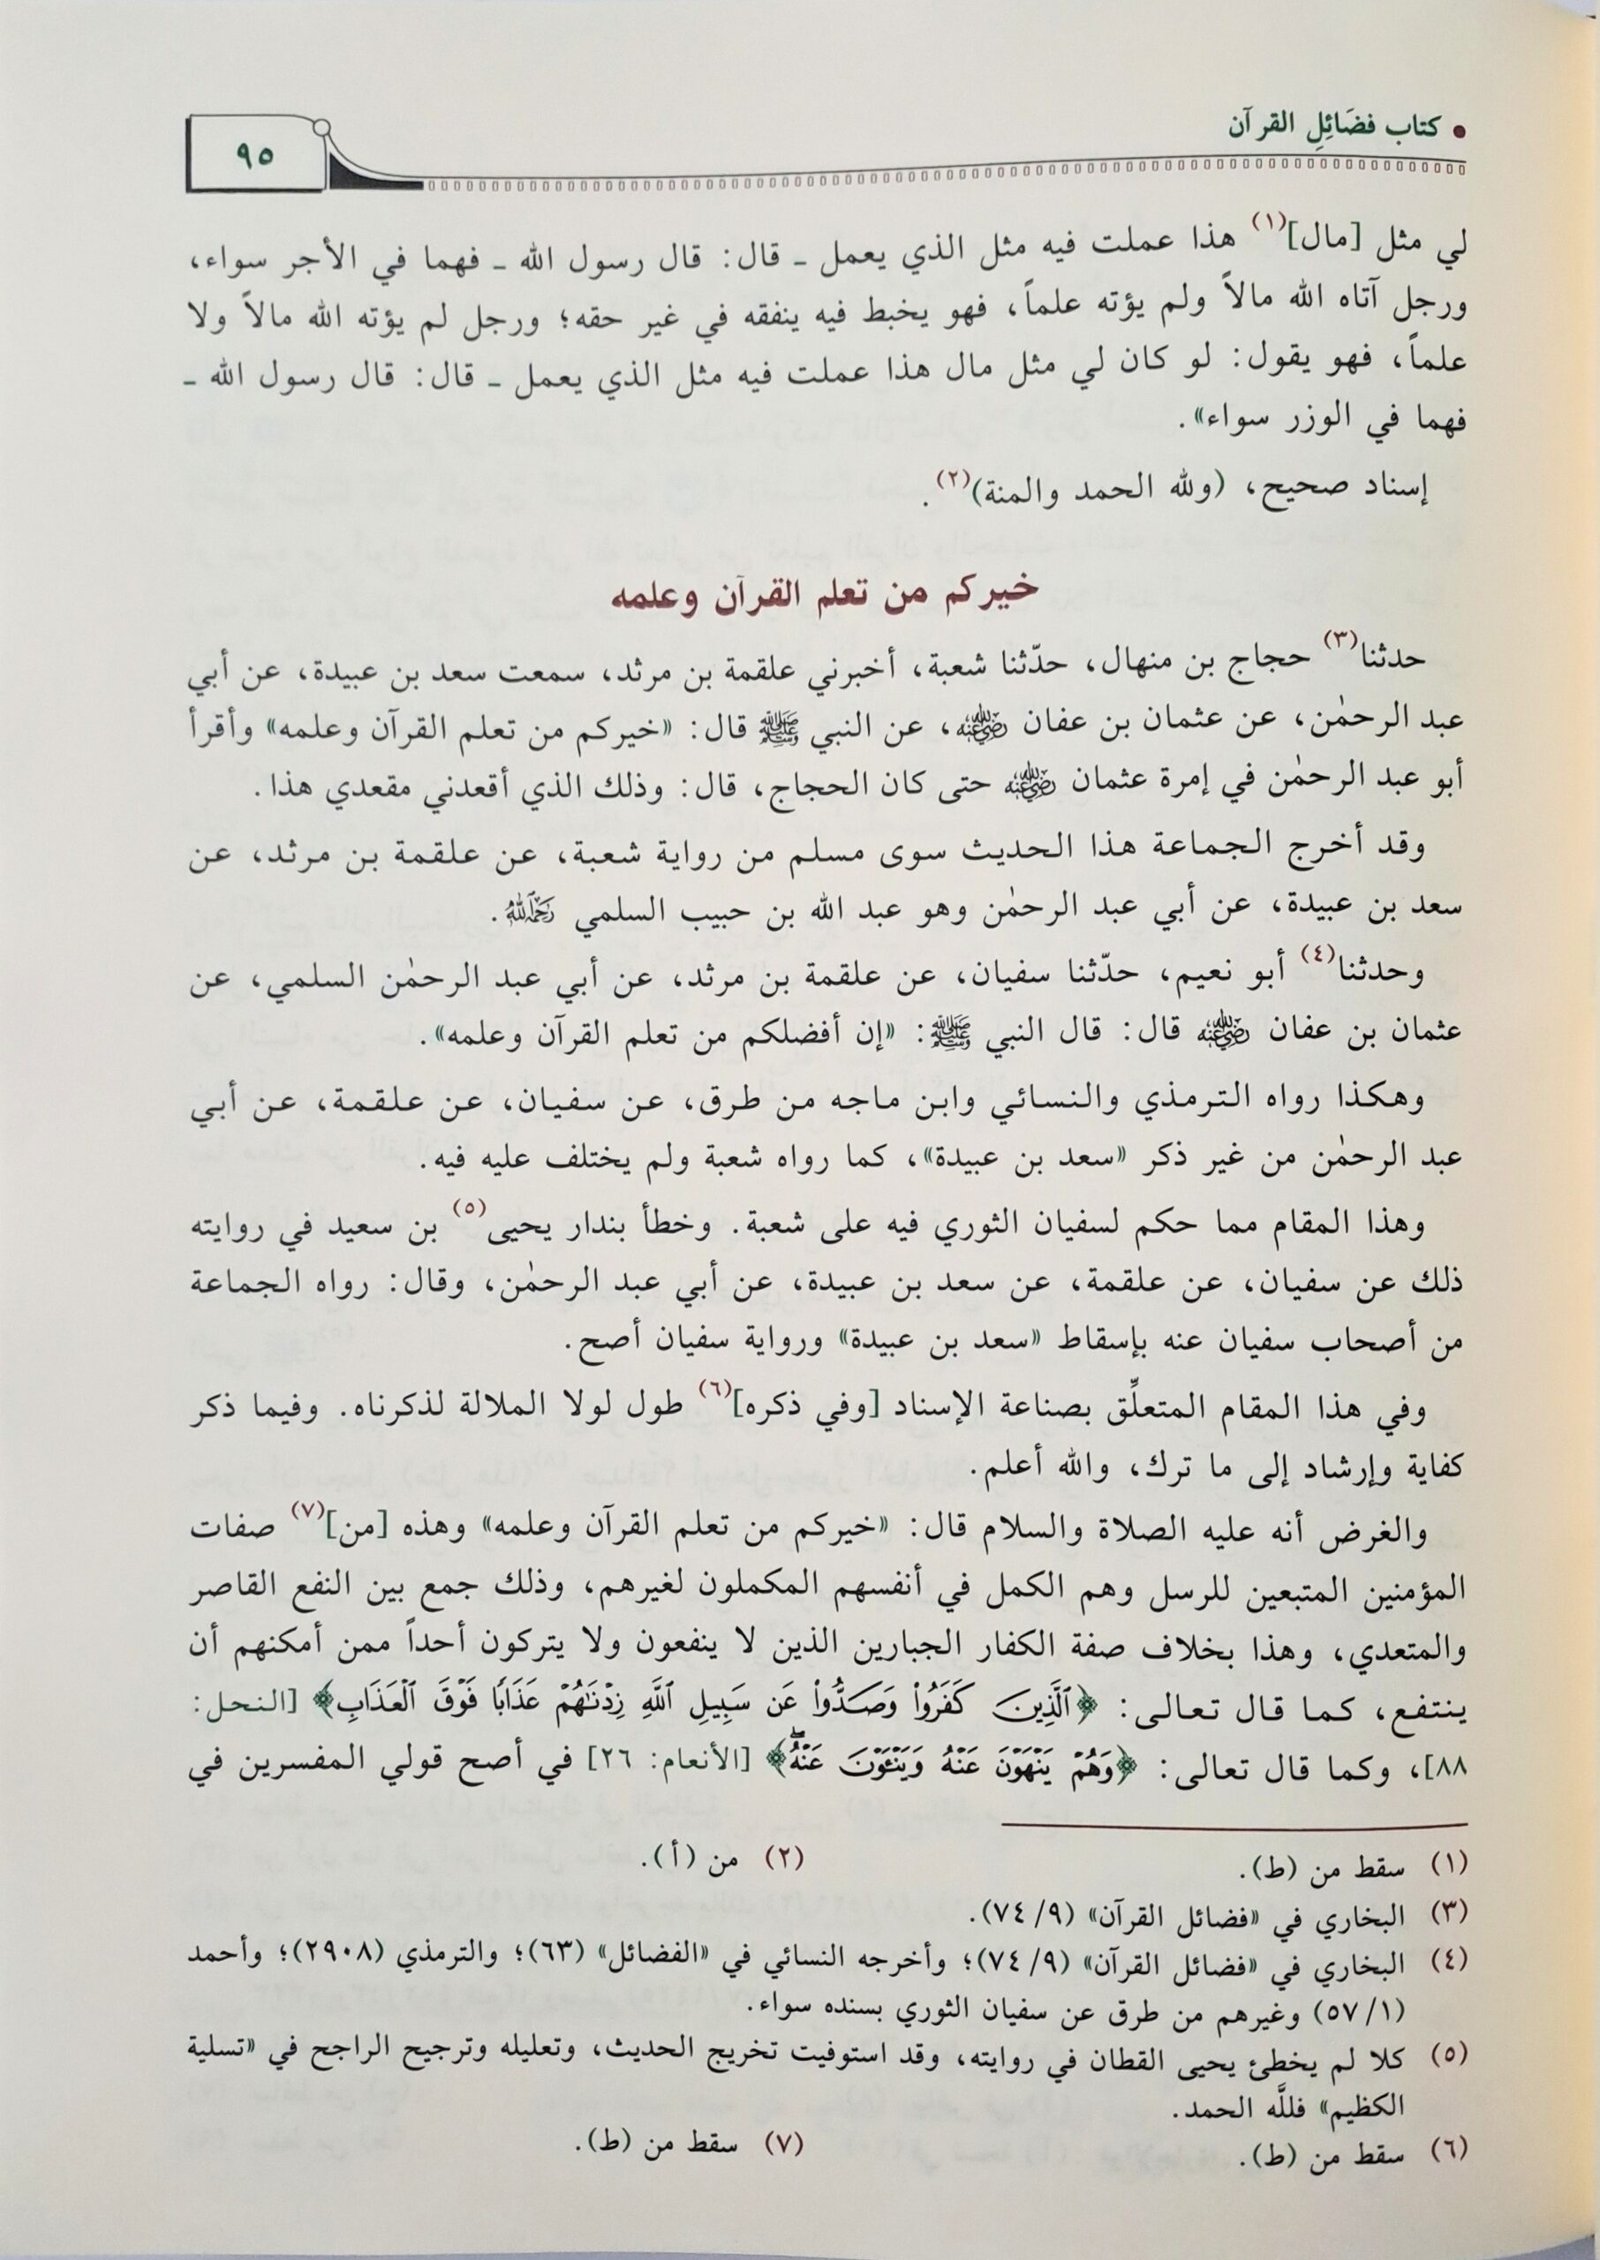 كتاب فضَائِلِ القرآن
٩٥
لي مثل [مال](١) هذا عملت فيه مثل الذي يعمل ـ قال: قال رسول الله ـ فهما في الأجر سواء،
ورجل آتاه الله مالاً ولم يؤته علماً، فهو يخبط فيه ينفقه في غير حقه؛ ورجل لم يؤته الله مالاً ولا
علماً، فهو يقول: لو كان لي مثل مال هذا عملت فيه مثل الذي يعمل ـ قال: قال رسول الله ـ
فهما في الوزر سواء».
إسناد صحيح، (ولله الحمد والمنة)(٢).
خيركم من تعلم القرآن وعلمه
حدثنا(٣) حجاج بن منهال، حدّثنا شعبة، أخبرني علقمة بن مرثد، سمعت سعد بن عبيدة، عن أبي
عبد الرحمٰن، عن عثمان بن عفان رضي الله عنه، عن النبي ﷺ قال: «خيركم من تعلم القرآن وعلمه» وأقرأ
أبو عبد الرحمٰن في إمرة عثمان رضي الله عنه حتى كان الحجاج، قال: وذلك الذي أقعدني مقعدي هذا.
وقد أخرج الجماعة هذا الحديث سوى مسلم من رواية شعبة، عن علقمة بن مرثد، عن
سعد بن عبيدة، عن أبي عبد الرحمٰن وهو عبد الله بن حبيب السلمي رحمه الله.
وحدثنا(٤) أبو نعيم، حدّثنا سفيان، عن علقمة بن مرثد، عن أبي عبد الرحمٰن السلمي، عن
عثمان بن عفان رضي الله عنه قال: قال النبي ﷺ: «إن أفضلكم من تعلم القرآن وعلمه».
وهكذا رواه الترمذي والنسائي وابن ماجه من طرق، عن سفيان، عن علقمة، عن أبي
عبد الرحمٰن من غير ذكر «سعد بن عبيدة»، كما رواه شعبة ولم يختلف عليه فيه.
وهذا المقام مما حكم لسفيان الثوري فيه على شعبة. وخطأ بندار يحيى(٥) بن سعيد في روايته
ذلك عن سفيان، عن علقمة، عن سعد بن عبيدة، عن أبي عبد الرحمٰن، وقال: رواه الجماعة
من أصحاب سفيان عنه بإسقاط «سعد بن عبيدة» ورواية سفيان أصح.
وفي هذا المقام المتعلِّق بصناعة الإسناد [وفي ذكره](٦) طول لولا الملالة لذكرناه. وفيما ذكر
كفاية وإرشاد إلى ما ترك، والله أعلم.
والغرض أنه عليه الصلاة والسلام قال: «خيركم من تعلم القرآن وعلمه» وهذه [من](٧) صفات
المؤمنين المتبعين للرسل وهم الكمل في أنفسهم المكملون لغيرهم، وذلك جمع بين النفع القاصر
والمتعدي، وهذا بخلاف صفة الكفار الجبارين الذين لا ينفعون ولا يتركون أحداً ممن أمكنهم أن
ينتفع، كما قال تعالى: ﴿ٱلَّذِينَ كَفَرُواْ وَصَدُّواْ عَن سَبِيلِ ٱللَّهِ زِدْنَٰهُمْ عَذَابًا فَوْقَ ٱلْعَذَابِ﴾ [النحل:
٨٨]، وكما قال تعالى: ﴿وَهُمْ يَنْهَوْنَ عَنْهُ وَيَنْـَٔوْنَ عَنْهُۖ﴾ [الأنعام: ٢٦] في أصح قولي المفسرين في
(١) سقط من (ط).
(٢) من (أ).
(٣) البخاري في «فضائل القرآن» (٩/ ٧٤).
(٤) البخاري في «فضائل القرآن» (٩/ ٧٤)؛ وأخرجه النسائي في «الفضائل» (٦٣)؛ والترمذي (٢٩٠٨)؛ وأحمد
(١/ ٥٧) وغيرهم من طرق عن سفيان الثوري بسنده سواء.
(٥) كلا لم يخطئ يحيى القطان في روايته، وقد استوفيت تخريج الحديث، وتعليله وترجيح الراجح في «تسلية
الكظيم» فللَّه الحمد.
(٦) سقط من (ط).
(٧) سقط من (ط).